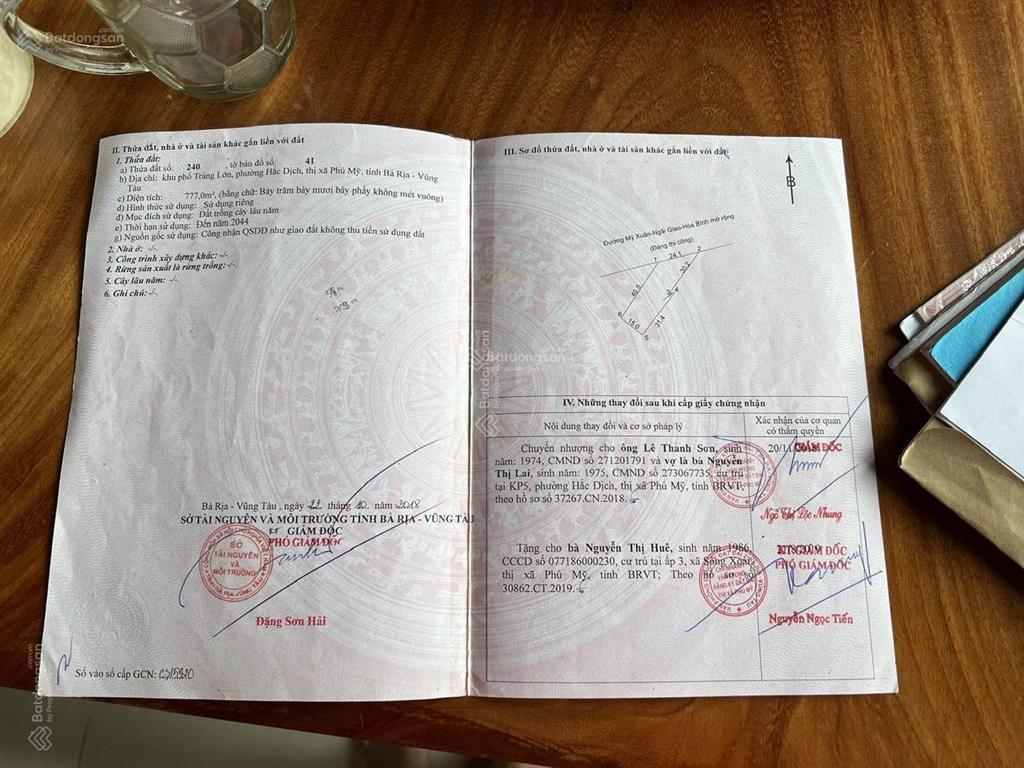 II. Thửa đất, nhà ở và tài sản khác gắn liền với đất
1. Thửa đất:
a) Thửa đất số: 240 , tờ bản đồ số: 41
b) Địa chỉ: khu phố Trảng Lớn, phường Hắc Dịch, thị xã Phú Mỹ, tỉnh Bà Rịa - Vũng
Tàu
c) Diện tích: 777,0m², (bằng chữ: Bảy trăm bảy mươi bảy phẩy không mét vuông)
d) Hình thức sử dụng: Sử dụng riêng
đ) Mục đích sử dụng: Đất trồng cây lâu năm
e) Thời hạn sử dụng: Đến năm 2044
g) Nguồn gốc sử dụng: Công nhận QSDĐ như giao đất không thu tiền sử dụng đất
2. Nhà ở: -/-
3. Công trình xây dựng khác: -/-
4. Rừng sản xuất là rừng trồng: -/-
5. Cây lâu năm: -/-
6. Ghi chú:-/-
Bà Rịa - Vũng Tàu, ngày 22 tháng 10 năm 2018
SỞ TÀI NGUYÊN VÀ MÔI TRƯỜNG TỈNH BÀ RỊA - VŨNG TÀU
KT GIÁM ĐỐC
PHÓ GIÁM ĐỐC
SỞ
TÀI NGUYÊN
VÀ
MÔI TRƯỜNG
Đặng Sơn Hải
Số vào sổ cấp GCN:
III. Sơ đồ thửa đất, nhà ở và tài sản khác gắn liền với đất
B
Đường Mỹ Xuân-Ngãi Giao-Hòa Bình mở rộng
(Đang thi công)
1 24.1 2
40.0 30.2
3 4
31.4
6 15.0 5
IV. Những thay đổi sau khi cấp giấy chứng nhận
Nội dung thay đổi và cơ sở pháp lý
Xác nhận của cơ quan
có thẩm quyền
Chuyển nhượng cho ông Lê Thanh Sơn, sinh
năm: 1974, CMND số 271201791 và vợ là bà Nguyễn
Thị Lai, sinh năm: 1975, CMND số 273067735, cư trú
tại KP5, phường Hắc Dịch, thị xã Phú Mỹ, tỉnh BRVT,
theo hồ sơ số 37267.CN.2018.
GIÁM ĐỐC
Ngô Thị Lộc Nhung
Tặng cho bà Nguyễn Thị Huê, sinh năm 1986,
CCCD số 077186000230, cư trú tại ấp 3, xã Sông Xoài,
thị xã Phú Mỹ, tỉnh BRVT; Theo hồ sơ số
30862.CT.2019.
KT.GIÁM ĐỐC
PHÓ GIÁM ĐỐC
Nguyễn Ngọc Tiến
Batdongsan
.com.vn
by PropertyGuru